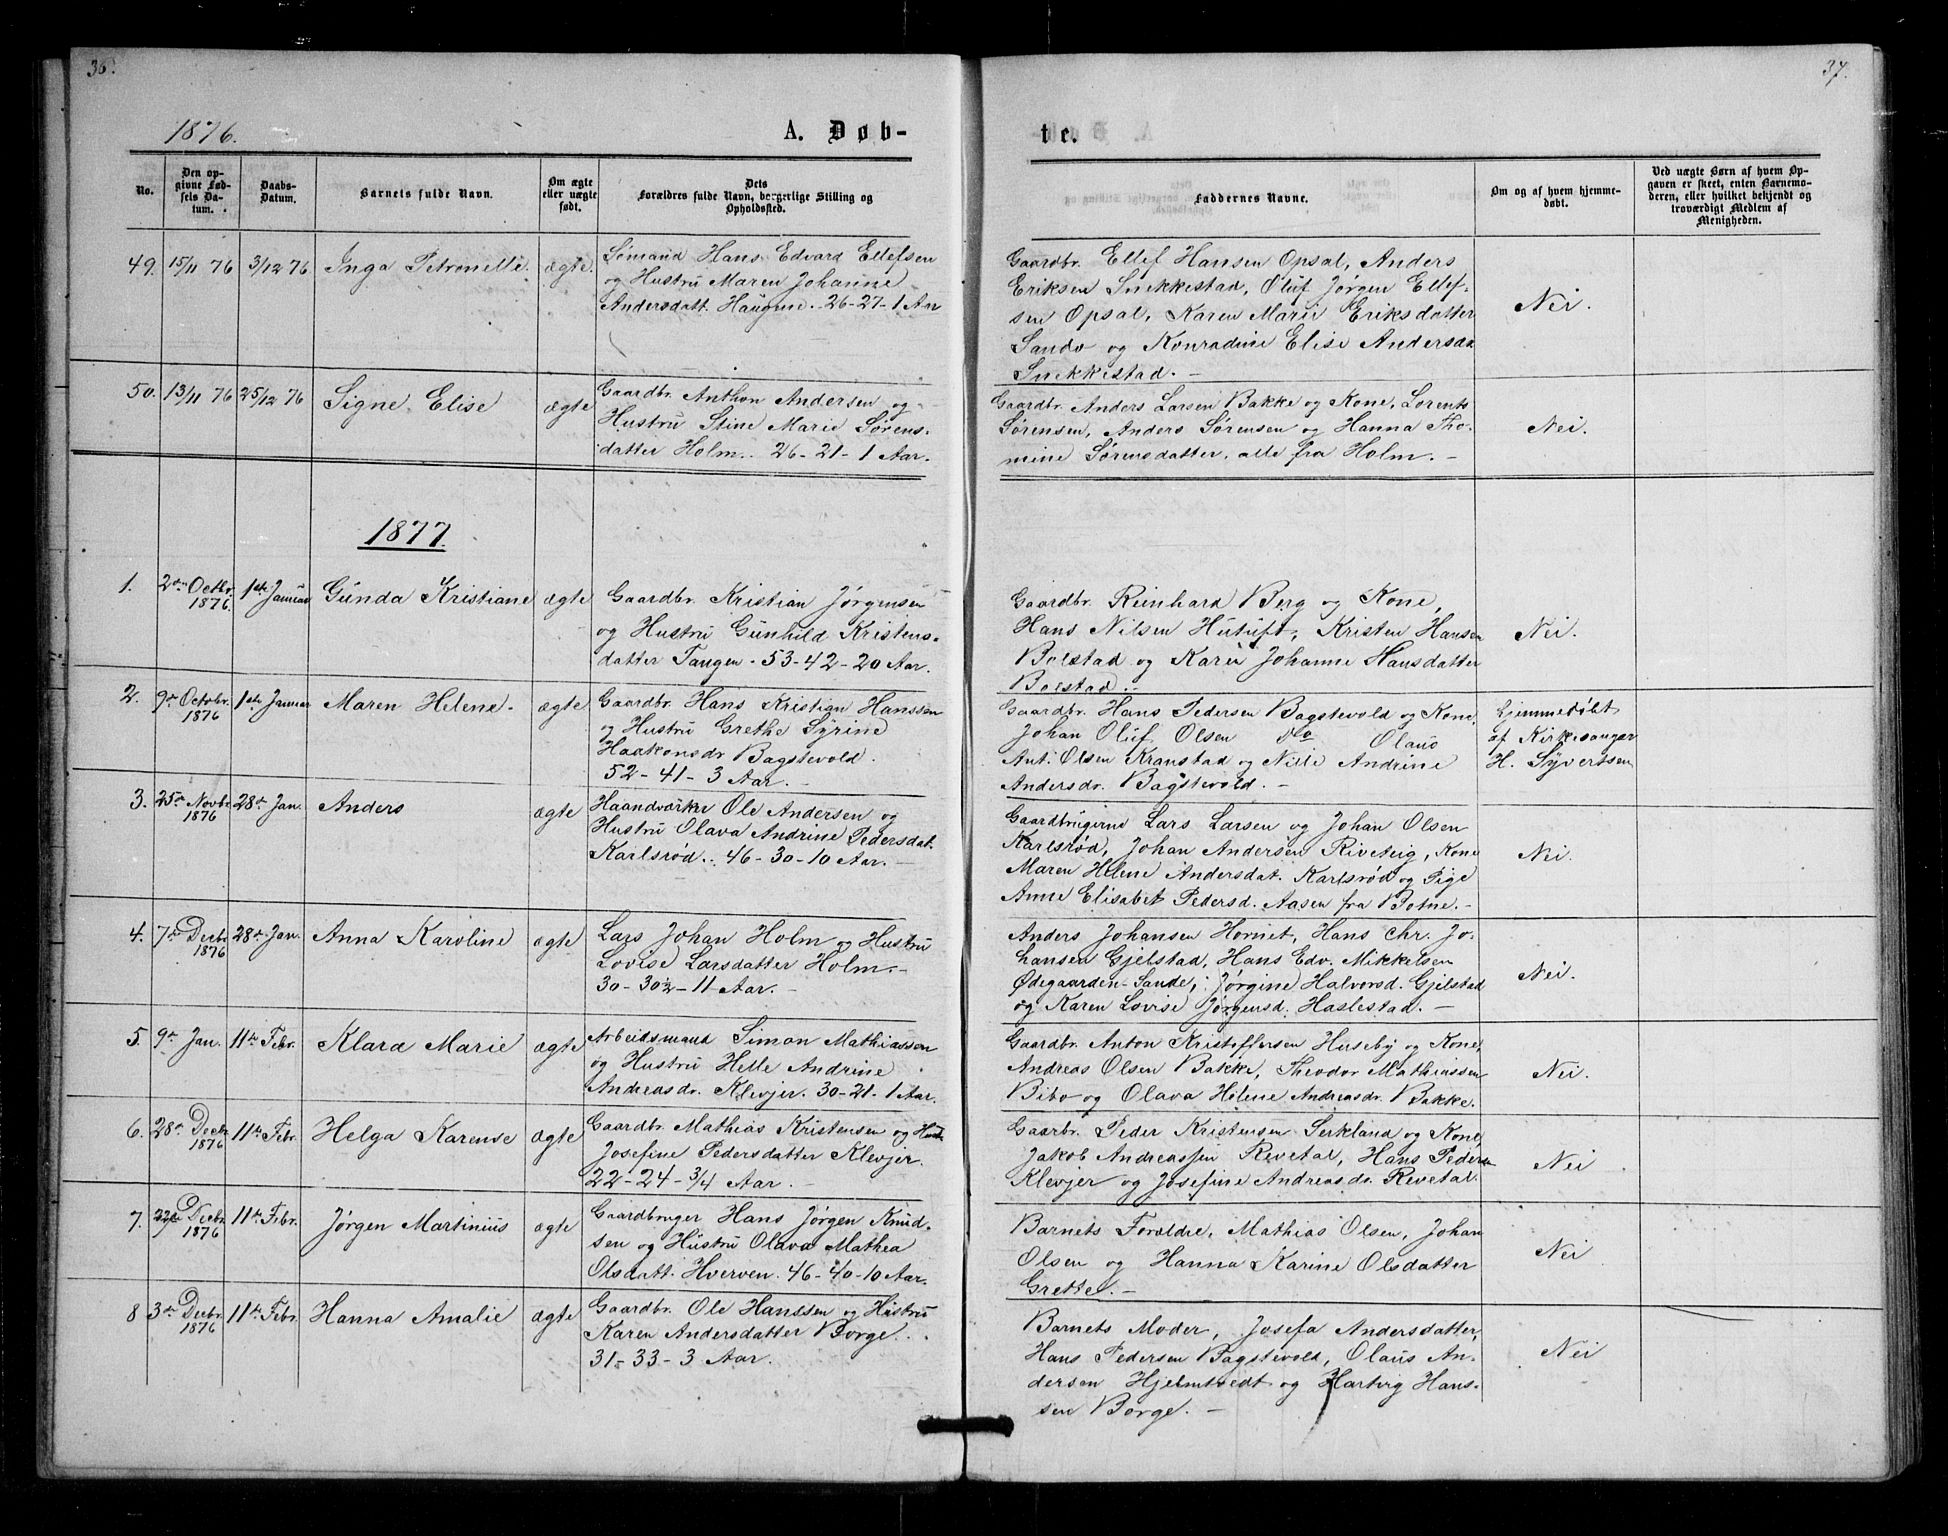 36.
1876.
A. Døb-
No.
Den op-
givne Fød-
sels Da-
tum.
Daabs-
Datum.
Barnets fulde Navn.
Om ægte
eller uægte
født.
Dets
Forældres fulde Navn, borgerlige Stilling og
Opholdssted.
49. 15/11 76 3/12 76 Inga Petronelle. ægte.
Sømand Hans Edvard Ellefsen
og Hustru Maren Johanne
Andersdatt. Haugene. 26-27-1 Aar
50. 13/11 76 25/12 76 Signe Elise ægte
Gaardbr. Anthon Andersen og
Hustru Stine Marie Sørens-
datter Holm. 26-21-1 Aar.
1877.
1. 2den Octbr. 1876. 1ste Januar Gunda Kristiane ægte
Gaardbr. Kristian Jørgensen
og Hustru Gunhild Kristens-
datter Tangen - 53-42-20 Aar.
2. 9de Octobr. 1876 1ste Januar Maren Helene. ægte
Gaardbr. Hans Kristian Hanssen
og Hustru Grethe Syrine
Haakonsdr Bagstevold.
52-41-3 Aar.
3. 25de Novbr. 1876 28de Jan. Anders ægte
Haandværker Ole Andersen og
Hustru Olava Andrine Pedersdat.
Karlsrød. 46-30-10 Aar.
4. 7de Decbr 1876 28de Jan. Anna Karoline ægte
Lars Johan Holm og Hustru
Lovise Larsdatter Holm.
30-30½-11 Aar.
5. 9de Jan. 11te Febr. Klara Marie ægte
Arbeidsmand Simon Mathiassen
og Hustru Helle Andrine
Andreasdr. Klevjer. 30-21-1 Aar.
6. 28de Decbr 1876 11te Febr. Helga Karense ægte
Gaardbr. Mathias Kristensen og Hustr
Josefine Pedersdatter Klevjer.
22-24-3/4 Aar.
7. 22de Decbr. 1876 11te Febr. Jørgen Martinius ægte
Gaardbruger Hans Jørgen Knud-
sen og Hustru Olava Mathea
Olsdatt. Hverven. 46-40-10 Aar.
8 3de Decbr. 1876 11te Febr. Hanna Amalie ægte
Gaardbr. Ole Hanssen og Hustru
Karen Andersdatter Borge.
31-33-3 Aar.
37.
te.
Faddernes Navne.
Om og af hvem hjemme-
døbt.
Ved uægte Børn af hvem Op-
gaven er skeet, enten Barnemo-
deren, eller hvilket bekjendt og
troværdigt Medlem af
Menigheden.
Gaardbr. Ellef Hansen Opsal, Anders
Eriksen Snekkestad, Oluf Jørgen Ellef-
sen Opsal, Karen Marie Eriksdatter
Sando og Konradine Elise Andersda
Snekkestad.
Nei.
Gaardbr. Anders Larsen Bakke og Kone, Lorents
Sørensen, Anders Sørensen og Hanna Tho-
mine Sørensdatter, alle fra Holm.
Nei.
Gaardbr. Reinhard Berg og Kone,
Hans Nilsen Hutuft, Kristen Hansen
Bolstad og Karen Johanne Hansdatter
Bolstad.
Nei.
Gaardbr. Hans Pedersen Bagstevold og Kone,
Johan Oluf Olsen do Olaus
Ant. Olsen Kranstad og Nille Andrine
Andersdr. Bagstevold.
Hjemmedøbt
af Kirkesanger
H. Syvertsen
Gaardbrugerne Lars Larsen og Johan Olsen
Karlsrød, Johan Andersen Riveteig, Kone
Maren Helene Andersdat. Karlsrød og Pige
Anne Elisabet Pedersd. Aasen fra Botne.
Nei.
Anders Johansen Hornet, Hans Chr. Jo-
hansen Gjelstad, Hans Edv. Mikkelsen
Ødegaarden-Sande, Jørgine Halvorsd. Gjelstad
og Karen Lovise Jørgensd. Haslestad.
Nei.
Gaardbr. Anton Kristoffersen Huseby og Kone,
Andreas Olsen Bakke, Theodor Mathiassen
Bibo og Olava Helene Andreasdr. Bakke.
Nei.
Gaarbr. Peder Kristensen Serkland og Kone,
Jakob Andreassen Revetal, Hans Peders
Klevjer og Josefine Andreasdr. Revetal.
Nei
Barnets Forældre, Mathias Olsen, Johan
Olsen og Hanna Karine Olsdatter
Grette.
Nei
Barnets Moder, Josefa Andersdatter,
Hans Pedersen Bagstevold, Olaus An-
dersen Hjelmtvedt og Hartvig Hans-
sen Borge.
Nei